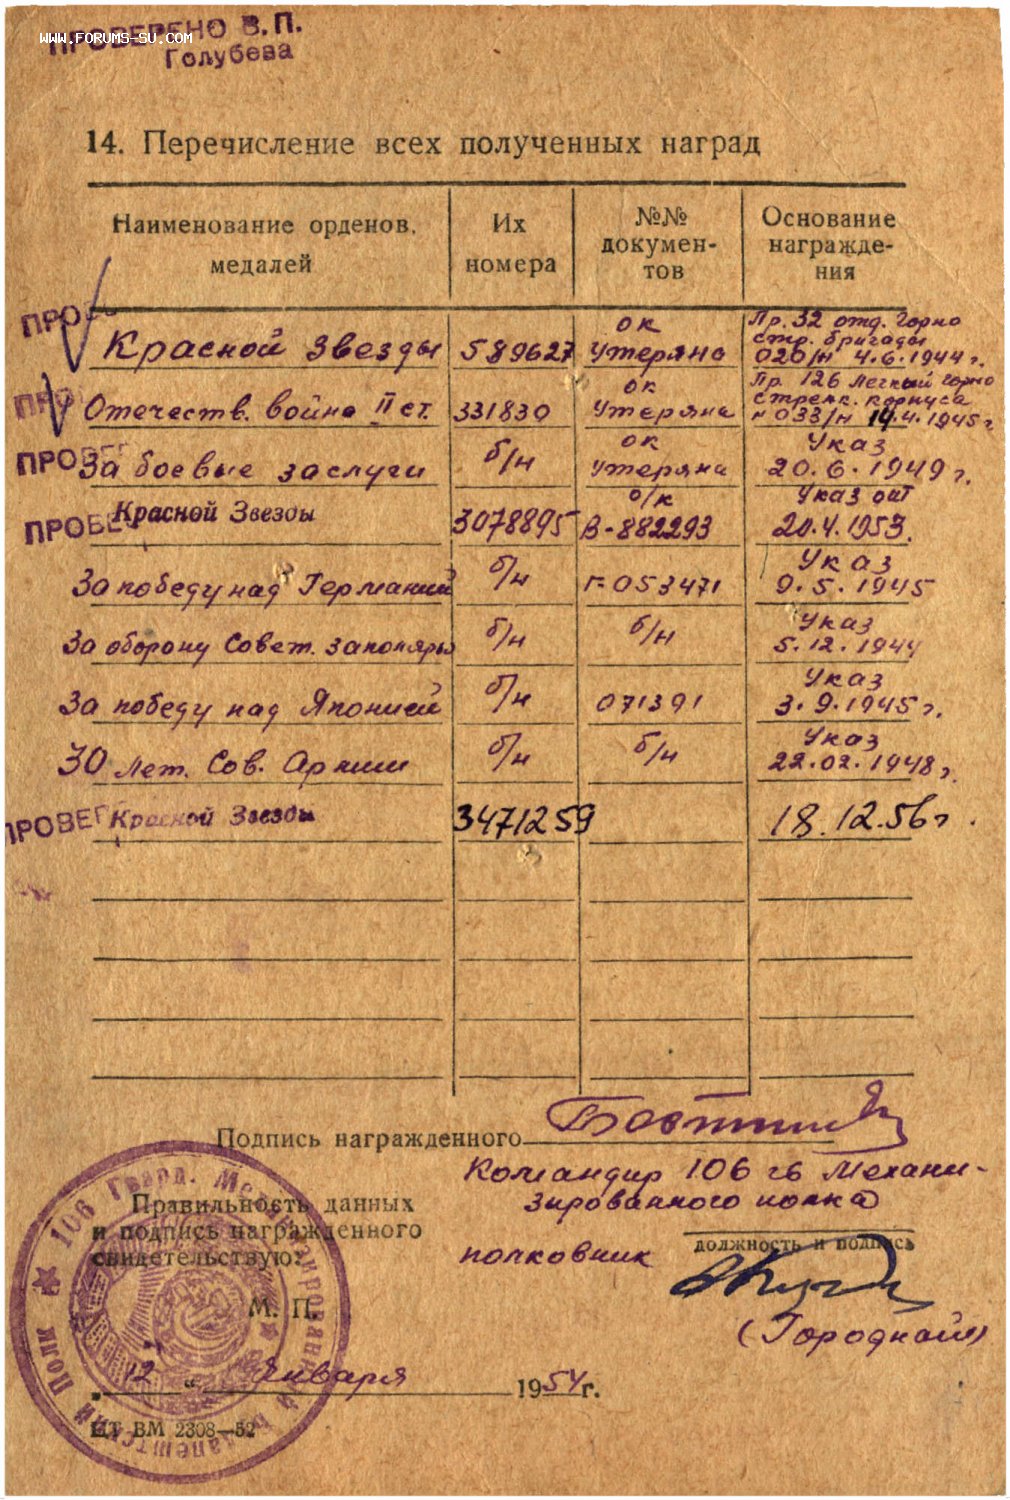 ПРОВЕРЕНО В.П.
WWW.FORUMS-SU.COM
Голубева
14. Перечисление всех полученных наград
Наименование орденов, медалей
Их номера
№№ докумен-тов
Основание награжде-ния
ПРОВЕ
Красной Звезды 589627 ок утеряна Пр. 32 отд. Горно стр. бригады 020/н 4.6.1944 г.
ПРО
Отечеств. война II ст. 331830 ок утеряна Пр. 126 легкий горно стрелк. корпуса № 033/н 14.4.1945 г
ПРОВЕР
За боевые заслуги б/н ок утеряна Указ 20.6.1949 г.
ПРОВЕ
Красной Звезды 3078895 о/к В-882293 Указ от 20.4.1953.
За победу над Германией б/н Г-053471 Указ 9.5.1945
За оборону Совет. заполярья б/н б/н Указ 5.12.1944
За победу над Японией б/н 071391 Указ 3.9.1945 г.
30 лет. Сов. Армии б/н б/н Указ 22.02.1948 г.
ПРОВЕР
Красной Звезды 3471259 18.12.56 г.
Подпись награжденного
Командир 106 гв механи-
зированного полка
Правильность данных
и подпись награжденного
свидетельствую:
полковник
должность и подпись
М. П.
(Городной)
„ 12 “ Января 1954 г.
ЦТ ВМ 2308—52
106 Гвард. Механизированный Будапештский Полк